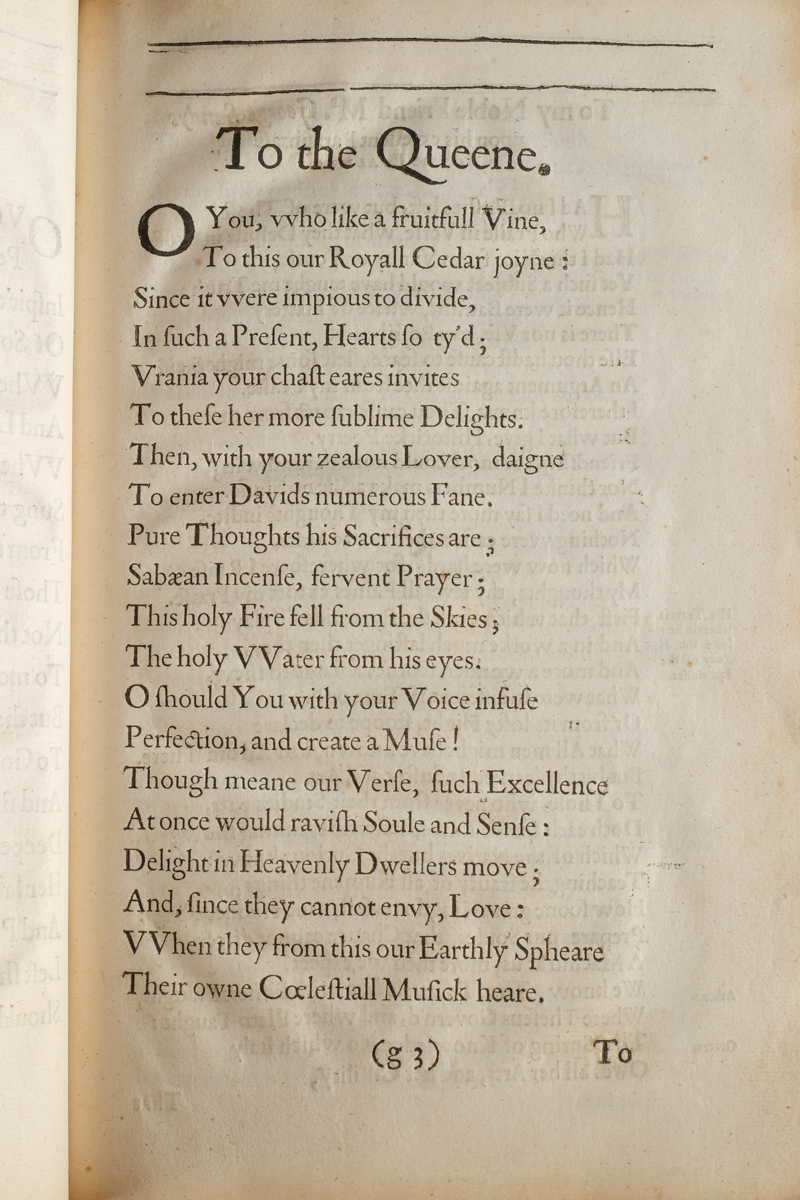 To the Queene.
O You, vvho like a fruitfull Vine,
To this our Royall Cedar joyne :
Since it vvere impious to divide,
In ſuch a Preſent, Hearts ſo ty'd ;
Vrania your chaſt eares invites
To theſe her more ſublime Delights.
Then, with your zealous Lover, daigne
To enter Davids numerous Fane.
Pure Thoughts his Sacrifices are ;
Sabæan Incenſe, fervent Prayer ;
This holy Fire fell from the Skies ;
The holy VVater from his eyes.
O ſhould You with your Voice infuſe
Perfection, and create a Muſe !
Though meane our Verſe, ſuch Excellence
At once would raviſh Soule and Senſe :
Delight in Heavenly Dwellers move ;
And, ſince they cannot envy, Love :
VVhen they from this our Earthly Spheare
Their owne Cœleſtiall Muſick heare.
(g 3) To